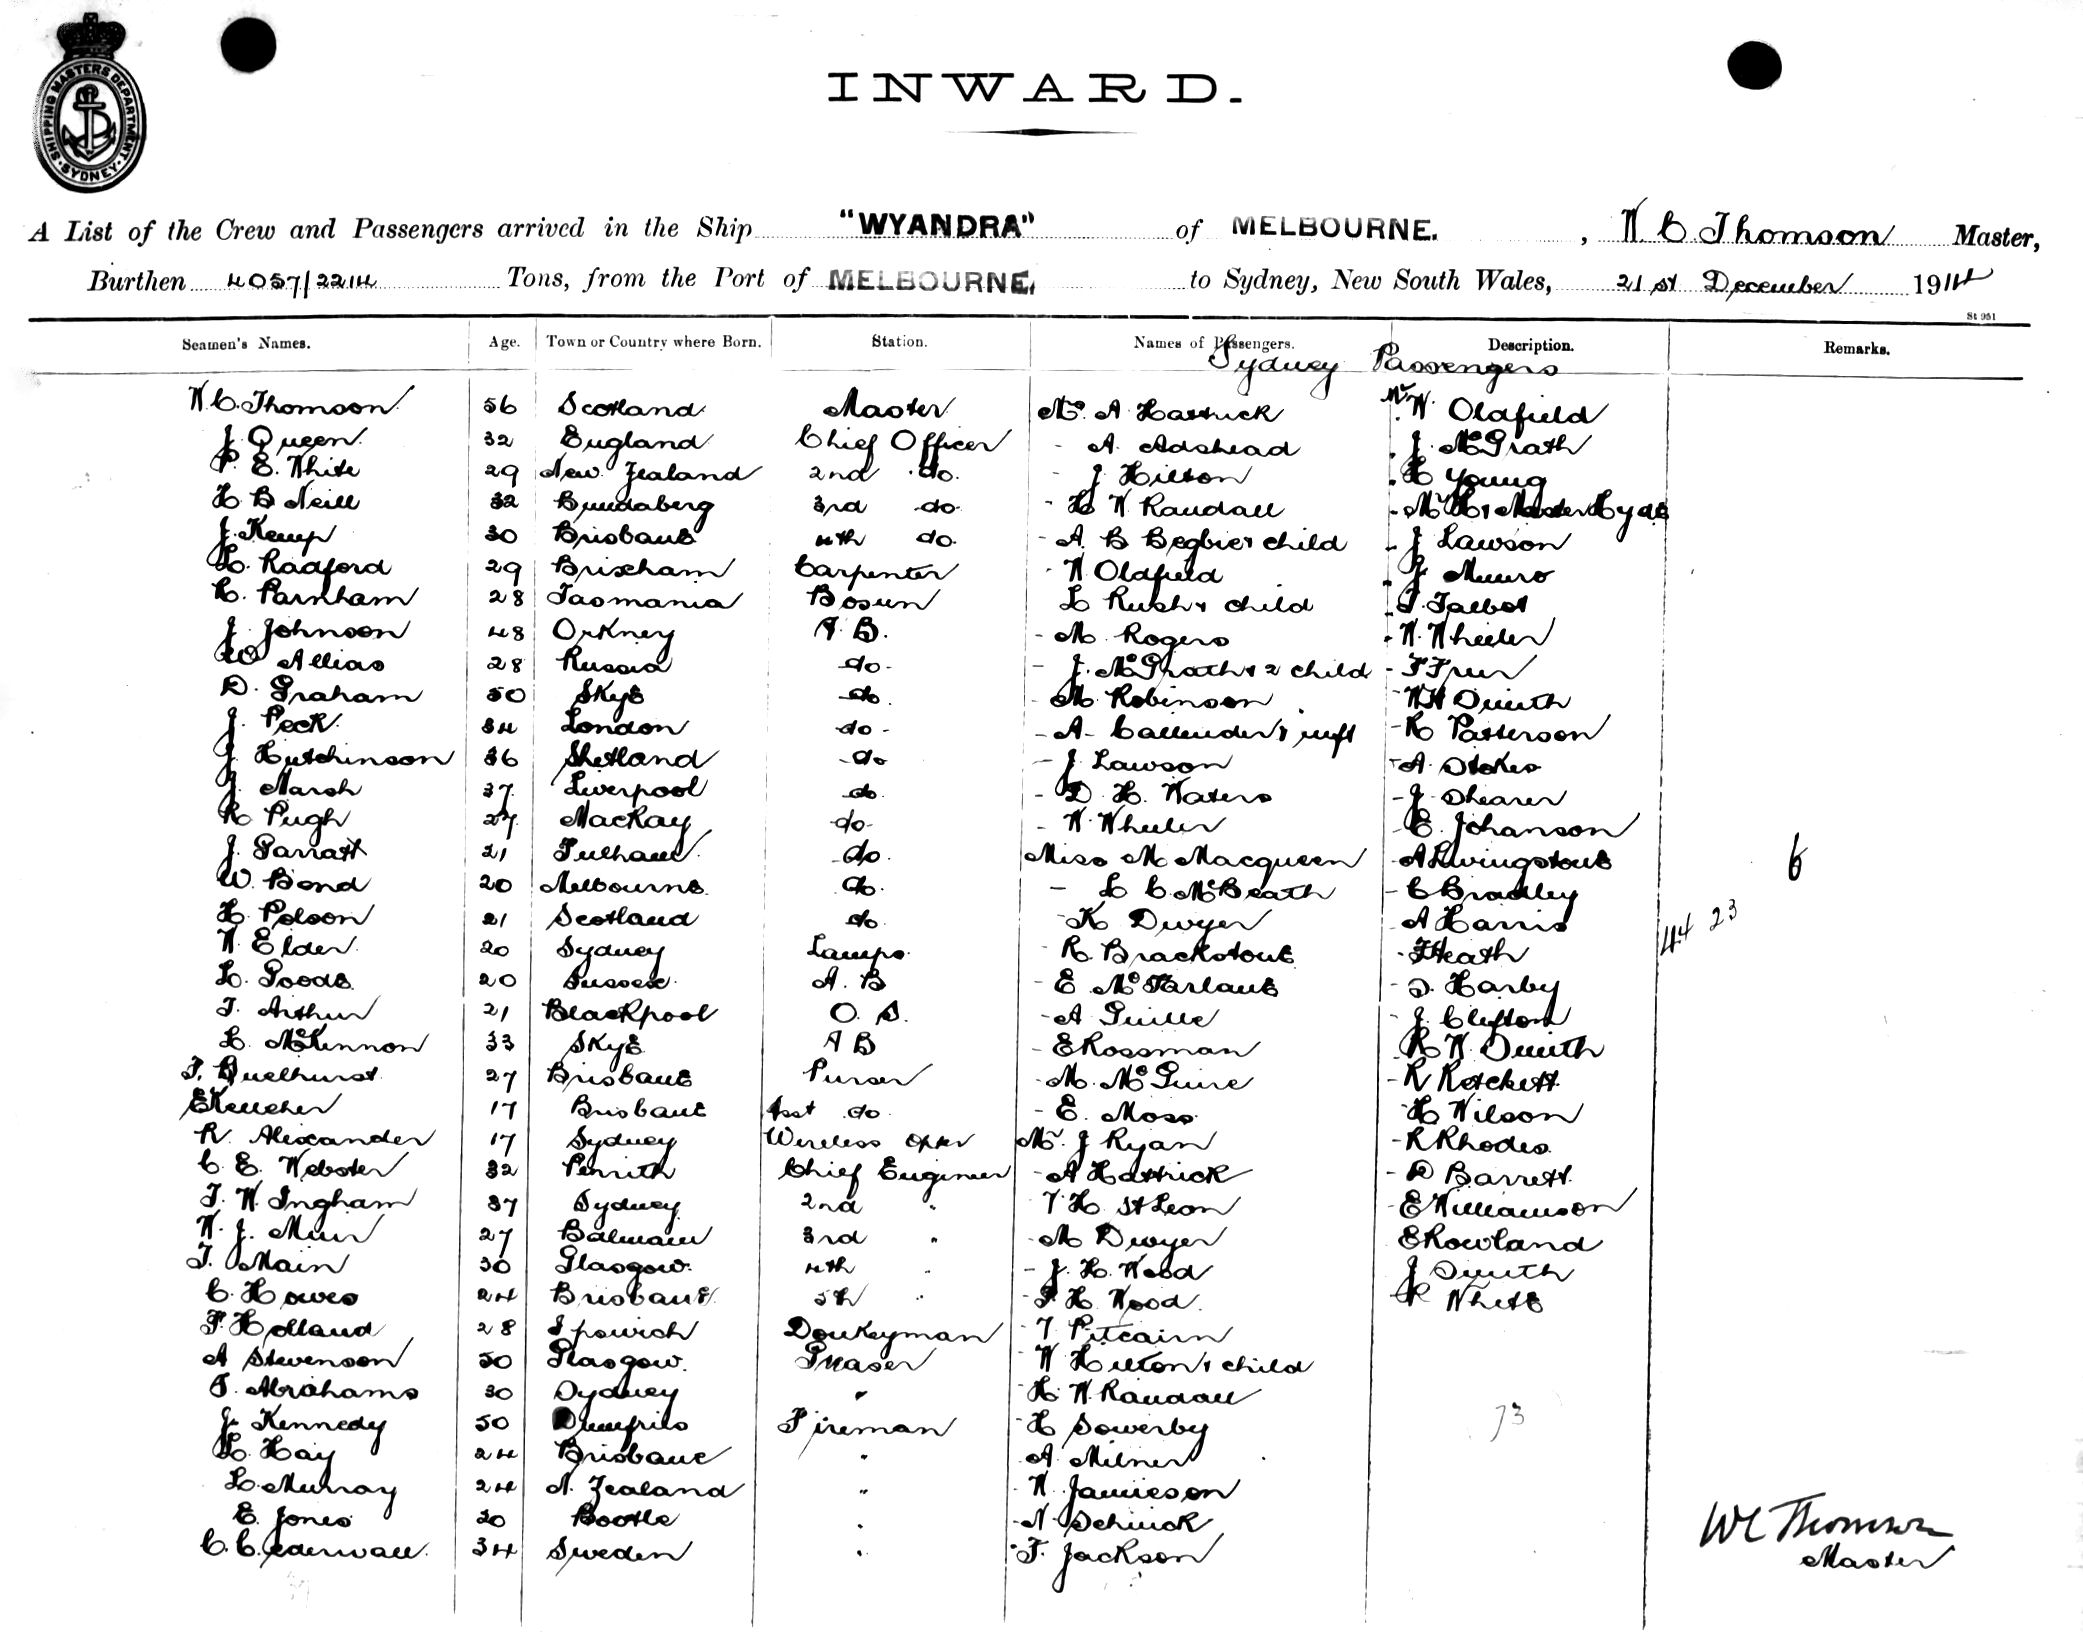 SHIPPING MASTERS DEPARTMENT · SYDNEY ·
INWARD.
A List of the Crew and Passengers arrived in the Ship "WYANDRA" of MELBOURNE. , W C Thomson Master,
Burthen 4057/2214 Tons, from the Port of MELBOURNE. to Sydney, New South Wales, 21st December 1914
St 951
Seamen's Names. Age. Town or Country where Born. Station. Names of Passengers. Description. Remarks.
Sydney Passengers
W C. Thomson 56 Scotland Master Mrs A Hattrick Mr W. Oldfield
J Queen 32 England Chief Officer - A. Adshead J McGrath
P. E. White 29 New Zealand 2nd do. - J Hilton H Young
H B Neill 32 Bundaberg 3rd do. - H W Randall - Mr H & Master Hyde
J. Kemp 30 Brisbane 4th do. - A. B Begbie & child - J Lawson
L. Radford 29 Brixham Carpenter - W Oldfield J Munro
C. Parnham 28 Tasmania Bosun L Rush & child T. Talbot
J Johnson 48 Orkney A. B. - M Rogers - W. Wheeler
W Allias 28 Russia do - - J. McGrath & 2 child - F
D. Graham 50 Skye do. - M Robinson - W H Smith
J. Peck 34 London do - - A - Callender & inft - R Patterson
J Hutchinson 36 Shetland do - J Lawson - A. Stokes
J. Marsh 37 Liverpool do. - D. H. Waters - J Shearer
R Pugh 27 MacKay do - - W Wheeler - E. Johanson
J. Parratt 21 Fulham do. Miss M Macqueen - A Livingstone
W. Bond 20 Melbourne do. - L C McBeath - C Bradley 6
H. Polson 21 Scotland do. - K Dwyer A Harris 44 23
W. Elder 20 Sydney Lamps - R. Brackstone - F Heath
L. Goode 20 Sussex A. B - E McFarlane - S. Harby
T. Arthur 21 Blackpool O. S. - A Guille - J. Clifton
L. McKennon 33 Skye A B - E Rossman R W Smith
T. Buelhurst 27 Brisbane Purser - M. McGuire - R Rotchett
E Kelleher 17 Brisbane Asst do - E. Moss - H Wilson
R. Alexander 17 Sydney Wireless Opter Mr. J Ryan - R Rhodes
C. E. Webster 32 Penrith Chief Engineer - A Hattrick - D Barrett.
T. W Ingham 37 Sydney 2nd " - T H. St Leon - E Williamson
W. J. Muir 27 Balmain 3rd " - M Dwyer E Rowland
T. Main 30 Glasgow. 4th " - J. H. Wood J Smith
C. Howes 24 Brisbane 5th " - P H. Wood. R White
P. Holland 28 Ipswich Donkeyman - T Pitcairn
A Stevenson 50 Glasgow. Greaser - W Hilton & child
T. Abrahams 30 Sydney " - H. W. Randall
J. Kennedy 50 Dumfries Fireman - H Sowerby 73
L. Hay 24 Brisbane " - A Milner
L. Murray 24 N. Zealand " - W Jamieson
E. Jones 30 Bootle " - N Schuck
C. Cederwall. 34 Sweden " - F. Jackson
W C Thomson
Master